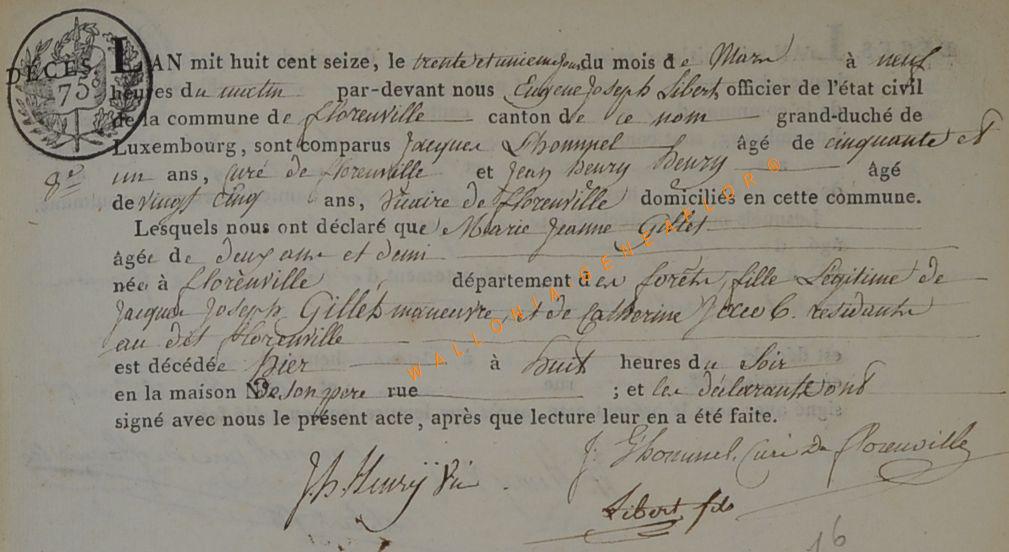 DÉCÈS
75 c
8e
LAN mil huit cent seize, le trente et unieme jour du mois de Mars à neuf
heures du matin par-devant nous Eugene Joseph Libert, officier de l'état civil
de la commune de florenville canton de ce nom grand-duché de
Luxembourg, sont comparus Jacques Lhommel âgé de cinquante et
un ans, curé de florenville et Jean henry henry âgé
de vingt cinq ans, vicaire de florenville domiciliés en cette commune.
Lesquels nous ont déclaré que Marie Jeanne Gillet
âgée de deux ans et demi
née à florenville département des forêts, fille Légitime de
Jacques Joseph Gillet manœuvre, et de Catherine résidants
au dit florenville
est décédée hier à huit heures du Soir
en la maison de son pere rue ; et les déclarants ont
signé avec nous le présent acte, après que lecture leur en a été faite.
J. Lhommel. Curé De florenville
J. h. Henrÿ Vic
Libert fils
16
WALLONIA'GENEAFLOR®